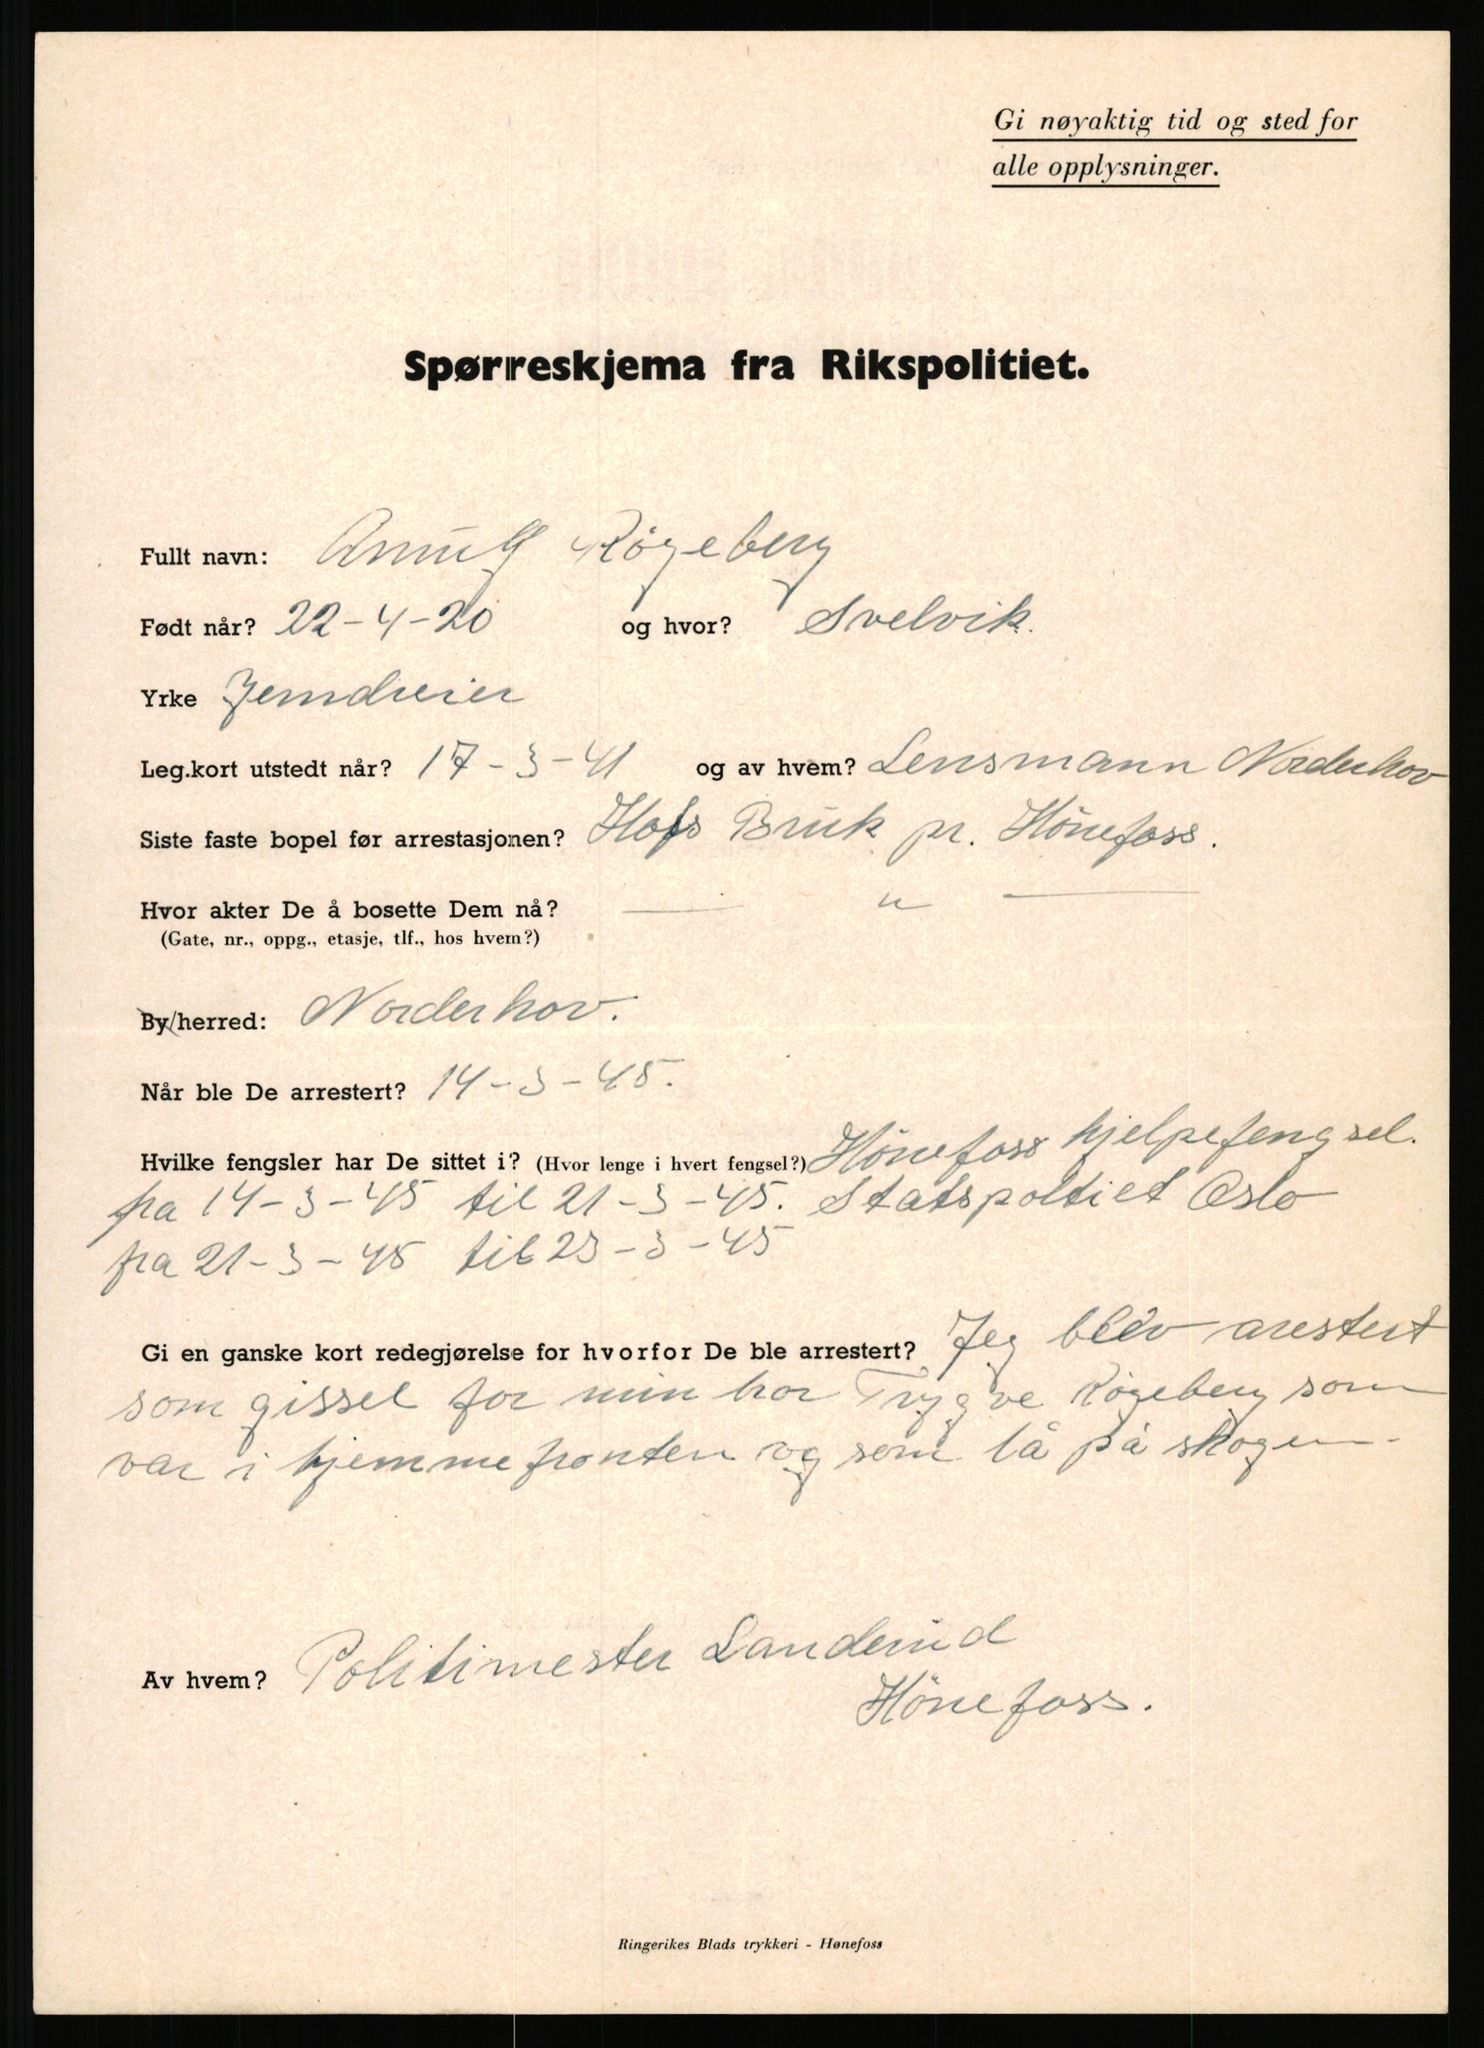 Gi nøyaktig tid og sted for
alle opplysninger.
Spørreskjema fra Rikspolitiet.
Fullt navn: Arnulf Røgeberg
Født når? 22-4-20 og hvor? Svelvik.
Yrke Jerndreier
Leg.kort utstedt når? 17-3-41 og av hvem? Lensmann Norderhov
Siste faste bopel før arrestasjonen? Hofs Bruk pr. Hönefoss.
Hvor akter De å bosette Dem nå? — " —
(Gate, nr., oppg., etasje, tlf., hos hvem?)
By/herred: Norderhov.
Når ble De arrestert? 14-3-45.
Hvilke fengsler har De sittet i? (Hvor lenge i hvert fengsel?) Hönefoss hjelpefengsel.
fra 14-3-45 til 21-3-45. Statspoltiet Oslo
fra 21-3-45 til 23-3-45
Gi en ganske kort redegjørelse for hvorfor De ble arrestert? Jeg blev arestert
som gissel for min bror Trygve Røgeberg som
var i hjemmefronten og som lå på skogen.
Av hvem? Politimester Landerud
Hönefoss.
Ringerikes Blads trykkeri - Hønefoss